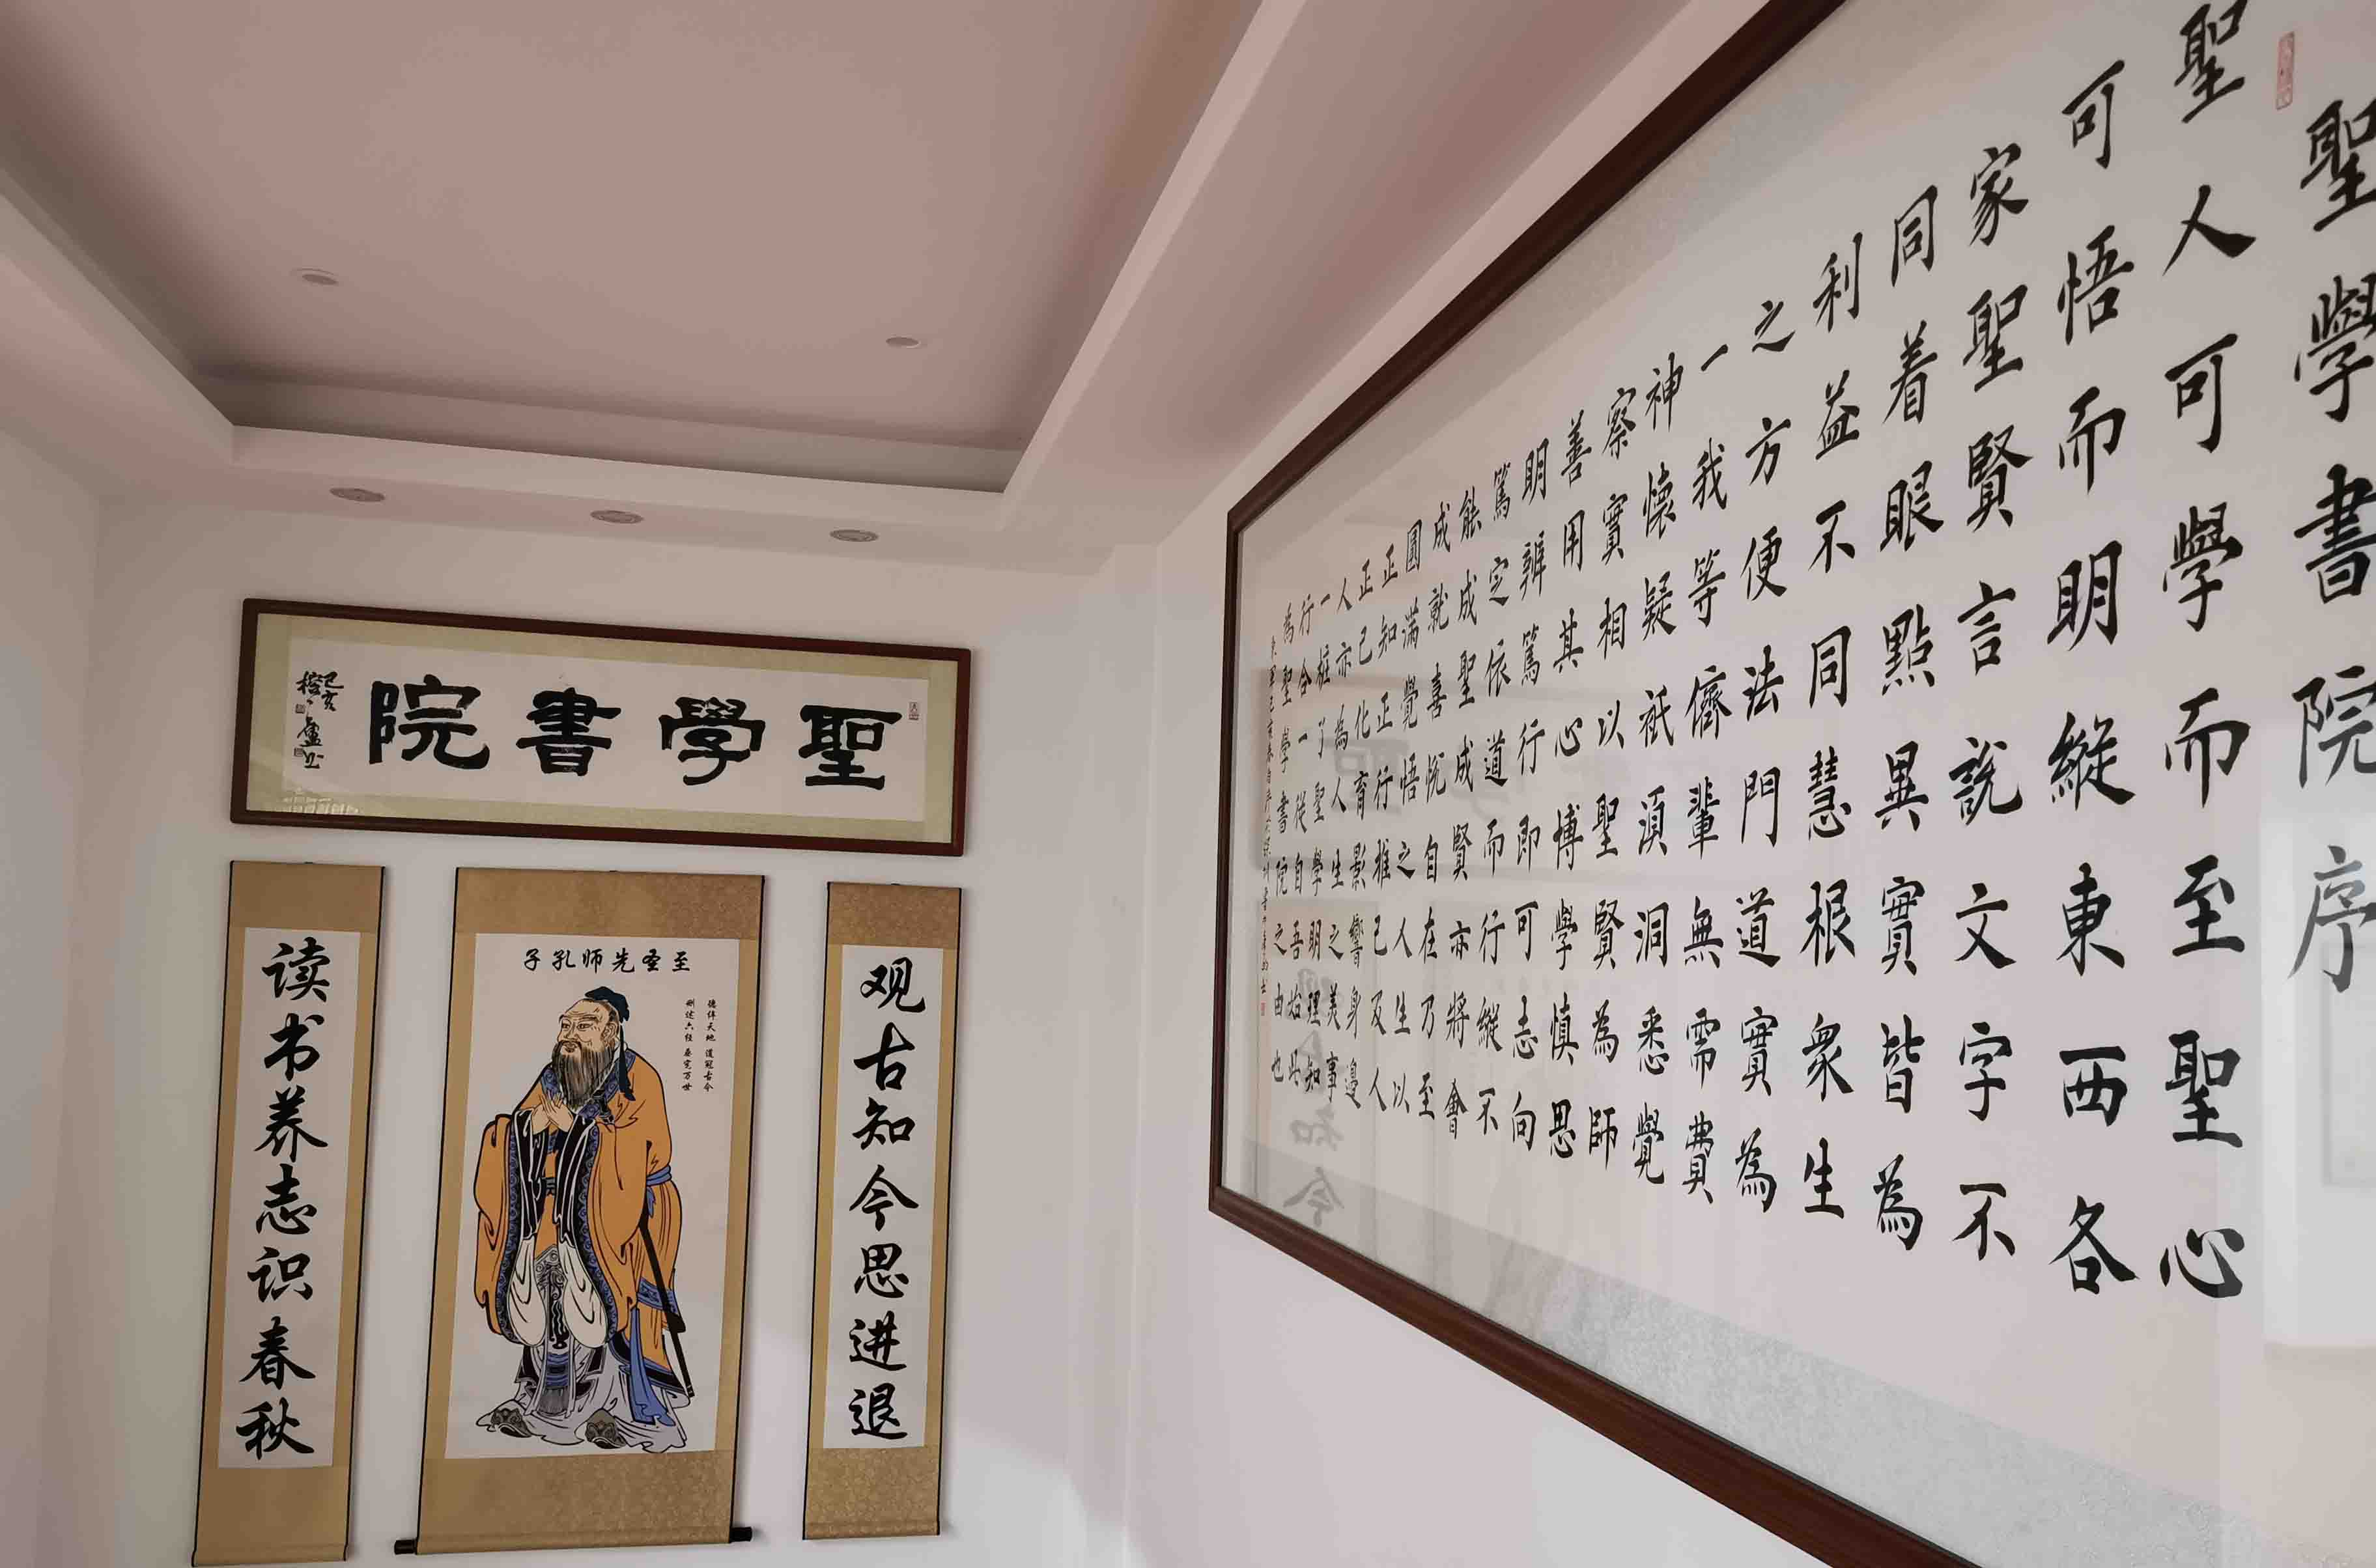 聖學書院
己亥
至圣先师孔子
德侔天地 道冠古今
删述六经 垂宪万世
观古知今思进退
读书养志识春秋
聖學書院序
聖人可學而至聖心
可悟而明縱東西各
家聖賢言説文字不
同着眼點異實皆為
利益不同慧根衆生
之方便法門道實為
一我等儕輩無需費
神懷疑祇須洞悉覺
察實相以聖賢為師
善用其心博學慎思
明辨篤行即可志向
篤定依道而行縱不
能成聖成賢亦將會
成就喜悦自在乃至
圓滿覺悟之人生以
正知正行推己及人
正己化育影響身邊
人亦為人生之美事
一樁了聖學明理知
行合一從自吾始此
為聖學書院之由也